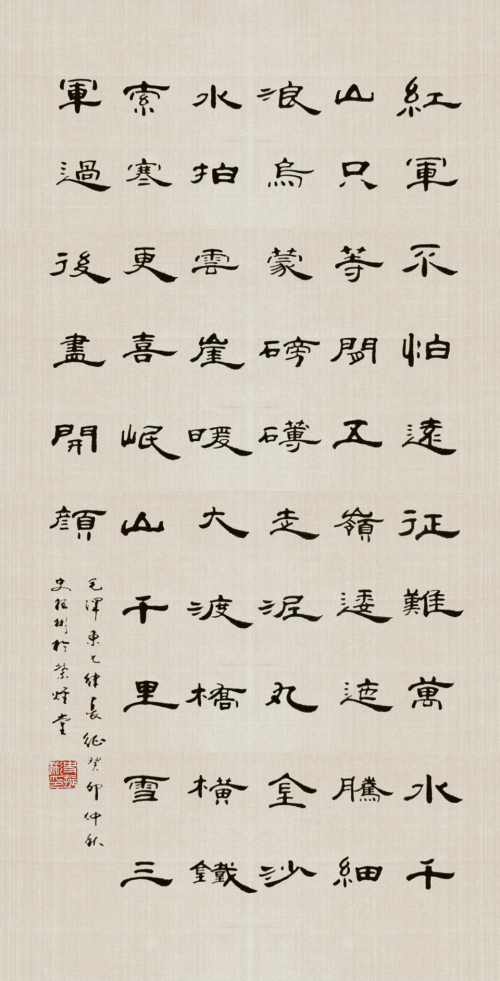 紅軍不怕遠征難萬水千
山只等閒五嶺逶迤騰細
浪烏蒙磅礴走泥丸金沙
水拍雲崖暖大渡橋橫鐵
索寒更喜岷山千里雪三
軍過後盡開顏
毛澤東七律長征癸卯仲秋
史彬於堂